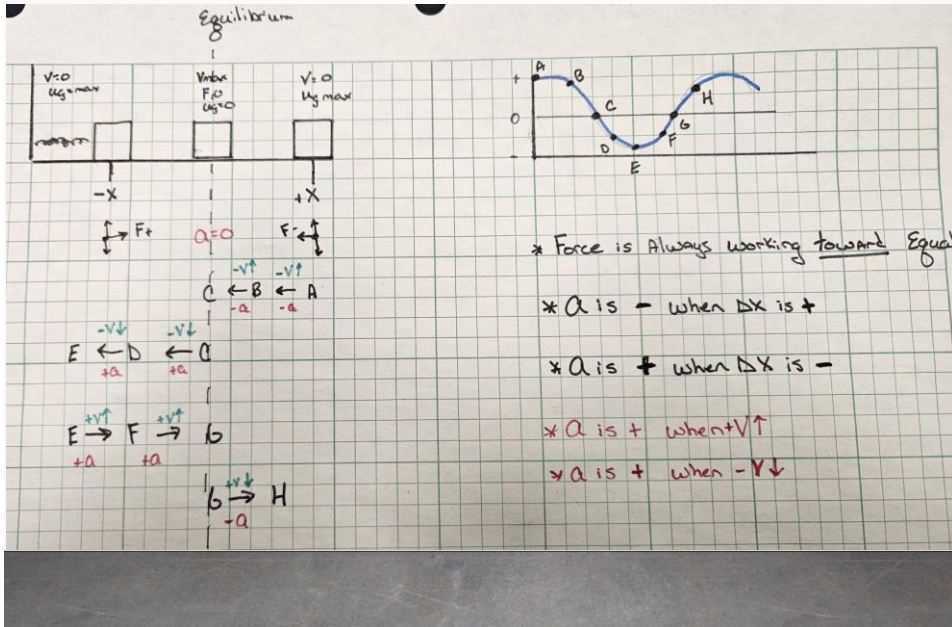 Equilibrium
V=0
ug=max
Vmax
F=0
ug=0
V=0
ug max
-X
+X
F+
a=0
F-
-V↑ -V↑
C ← B ← A
-a -a
-V↓ -V↓
E ← D ← C
+a +a
+V↑ +V↑
E → F → G
+a +a
+V↓
G → H
-a
+
0
-
A
B
C
D
E
F
G
H
* Force is Always working toward Equa
* a is - when ΔX is +
* a is + when ΔX is -
* a is + when +V↑
* a is + when -V↓